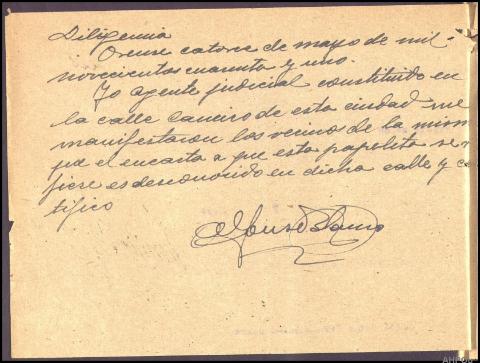 Diligencia
Orense catorce de mayo de mil
novecientos cuarenta y uno.
Yo agente judicial constituido en
la calle Caneiro de esta ciudad me
manifestaron los vecinos de la mism
que el encarta a que esta papeleta se r
fiere es desconocido en dicha calle y ce
tifico
Alfonso